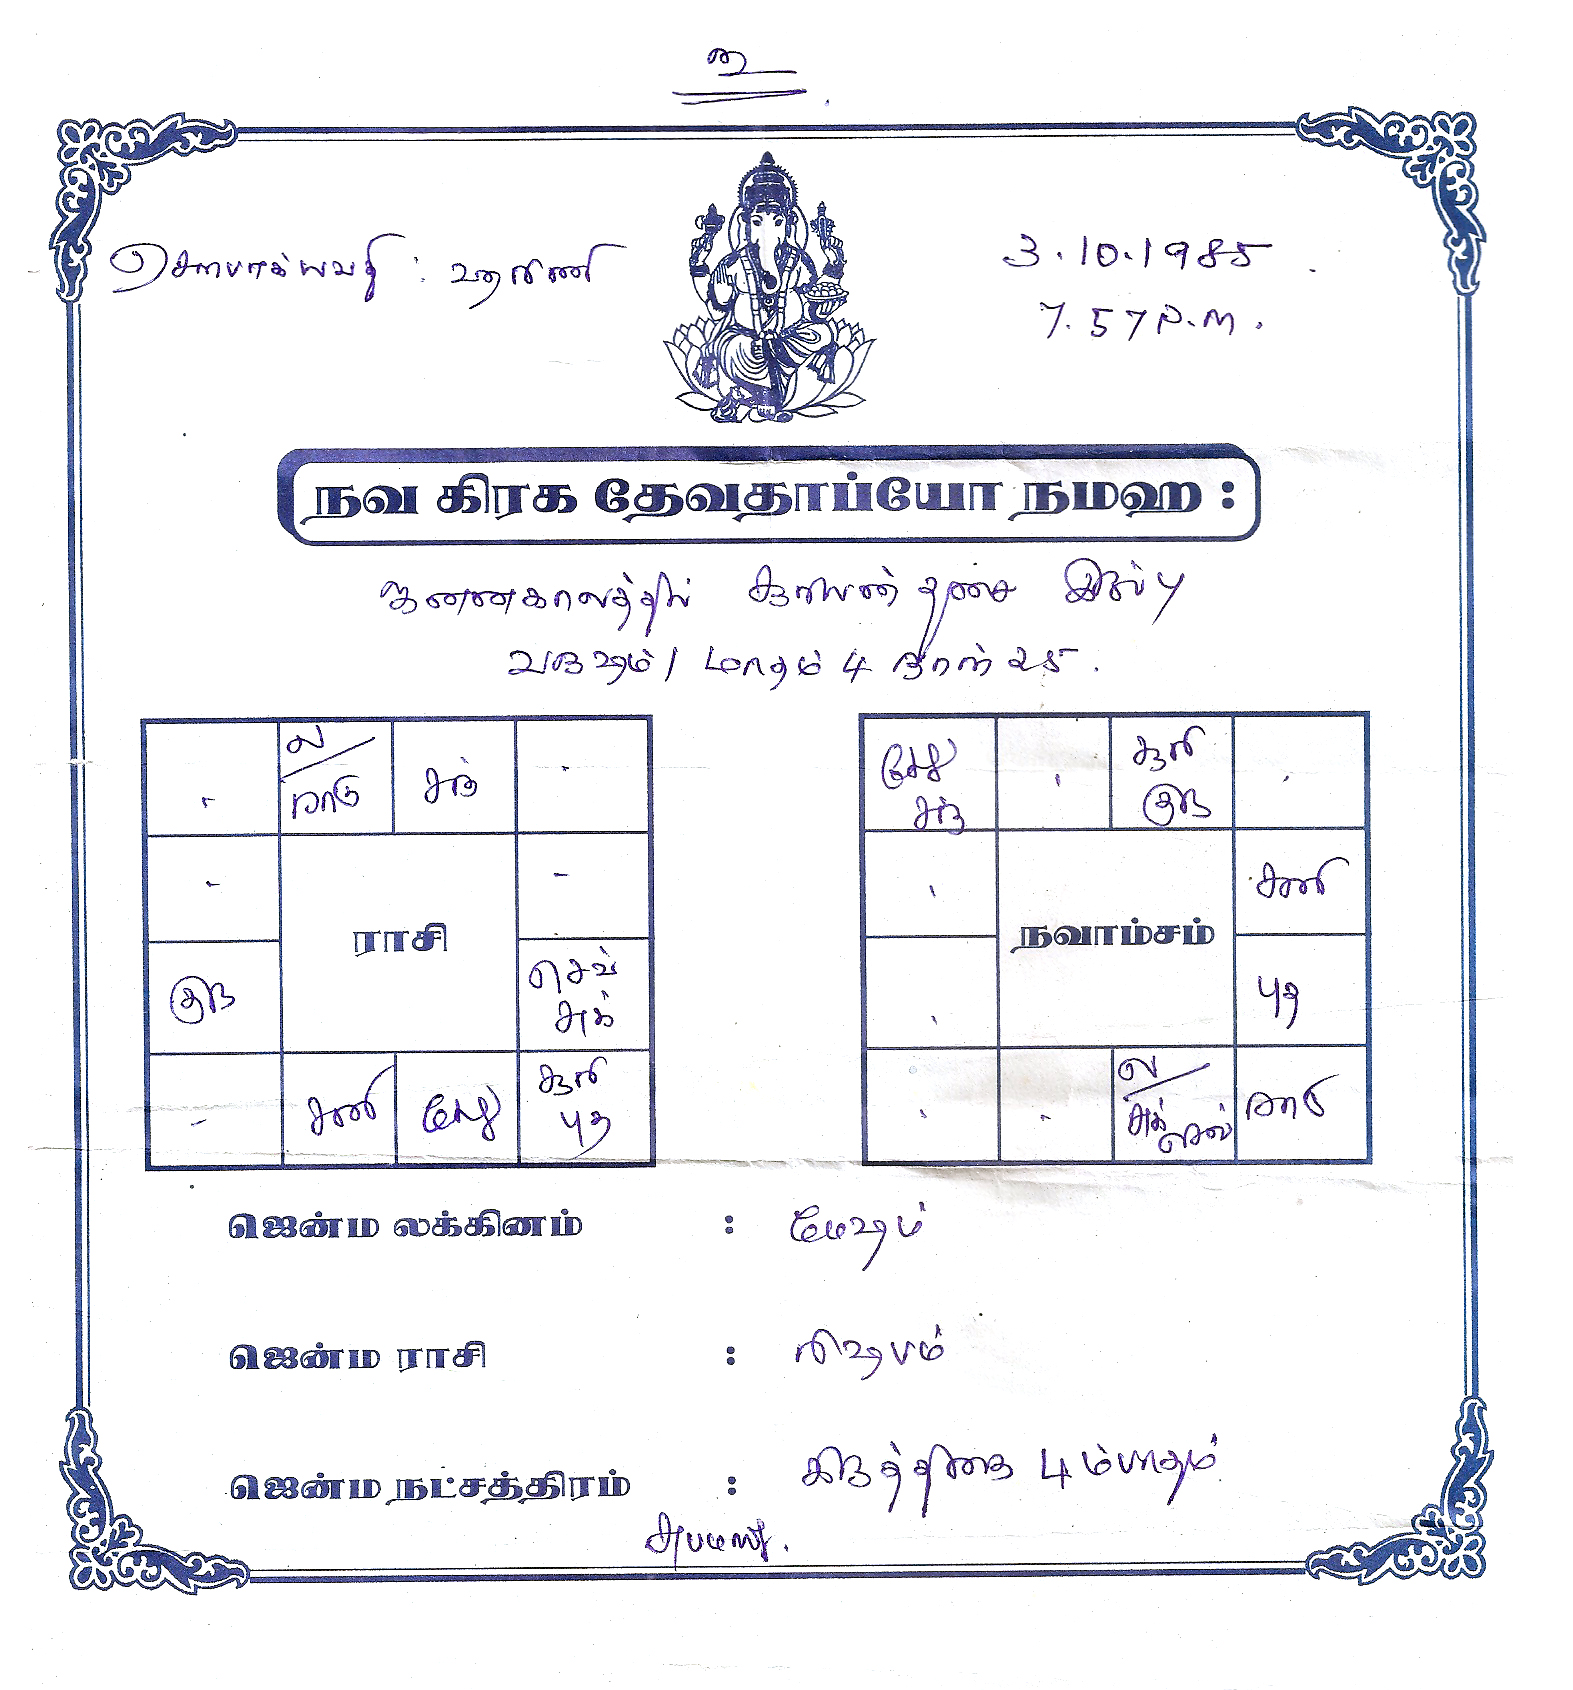 உ
சௌபாக்யவதி : ஹரிணி
3.10.1985
7.57 P.M.
நவ கிரக தேவதாப்யோ நமஹ :
ஜனனகாலத்தில் சூரியன் தசை இருப்பு
வருஷம் 1 மாதம் 4 நாள் 25.
ல/ ராகு சந்
சூரி குரு
கேது சந்
குரு
ராசி
செவ் சுக்
சனி கேது சூரி புத
நவாம்சம்
சனி
புத
ல/ சுக் செவ் ராகு
ஜென்ம லக்கினம் : மேஷம்
ஜென்ம ராசி : ரிஷபம்
ஜென்ம நட்சத்திரம் : கிருத்திகை 4ம்பாதம்
சுபமஸ்து.